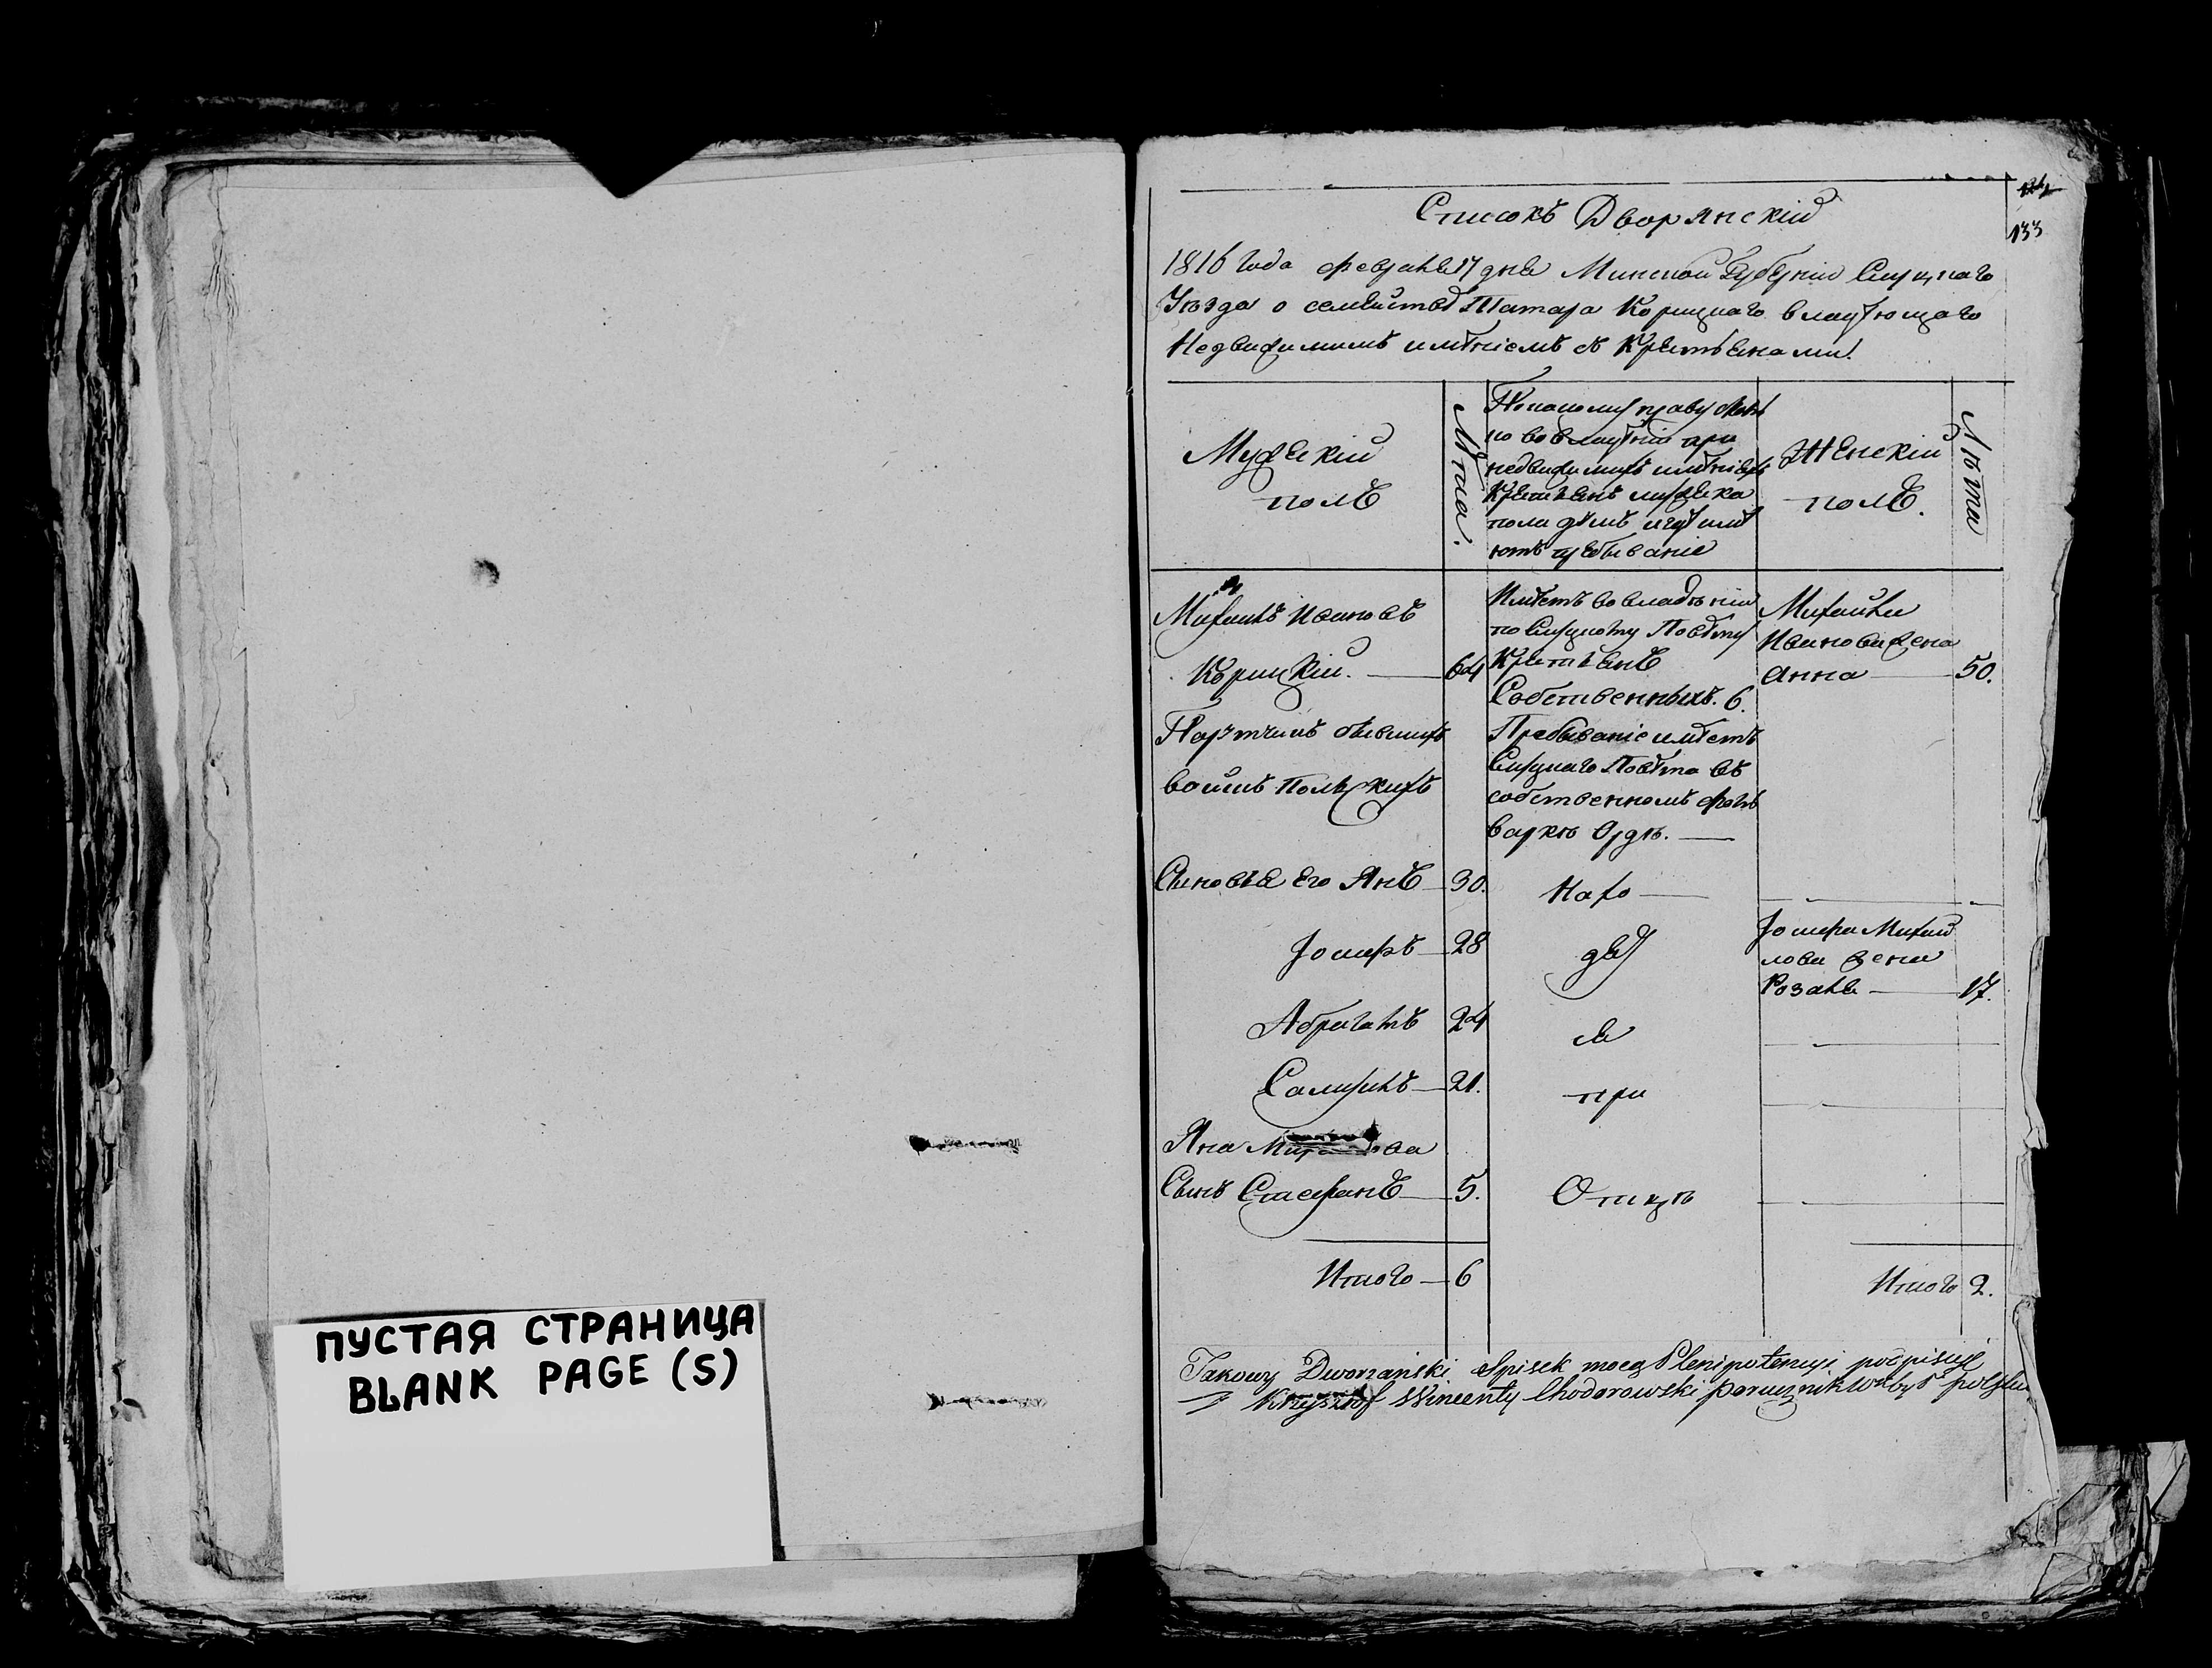 ПУСТАЯ СТРАНИЦА
BLANK PAGE (S)
133
Списокъ Дворянскій
1816 года февраля 17 дня Минской Губерніи Слуцкаго
Уѣзда о семействѣ Татара Корицкаго владѣющаго
Недвижимымъ имѣніемъ съ Крестьянами.
Мужескій
полъ
Лѣта.
по во владѣніи при
недвижимыхъ имѣніяхъ
Крестьянъ мужеска
пола
ютъ пребываніе
Женскій
полъ.
Лѣта
Михаилъ Ивановъ
Корицкій. 64
Порутчикъ бывшихъ
войскъ Польскихъ
Имѣетъ во владѣніи
по Слуцкому Повѣту
Крестьянъ
Собственныхъ. 6.
Пребываніе имѣетъ
Слуцкаго Повѣта въ
собственномъ фоль
варкѣ Ордѣ.
Михайла
Иванова жена
Анна 50.
Сыновья Его Янъ 30.
Іосифъ 28
Абрагамъ 24
Самуилъ 21.
Яна Михайлова
Сынъ Стефанъ 5.
Нахо
дят
ся
при
Отцѣ
Іосифа Михай
лова жена
Розалія 17.
Итого 6
Итого 2.
Takowy Dworzański Spisek mocą Plenipotencyi podpisuię
Krzysztof Wincenty Chodorowski porucznik W. b. polskich